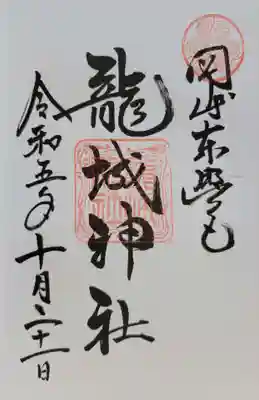 岡崎東照宮
龍城神社
令和五年十月二十一日